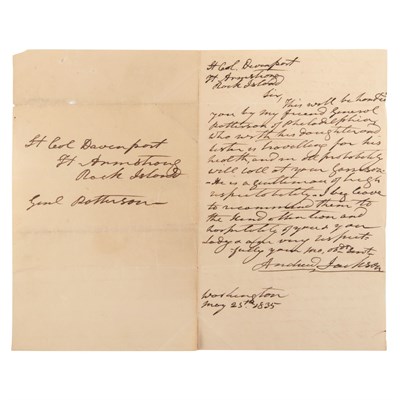 Lt Col Davenport
Ft Armstrong
Rock Island
Genl Patterson
Lt Col Davenport
Ft Armstrong
Rock Island
Sir,
This will be handed
you by my friend General
Patterson of Philadelphia
who with his daughter and
sister is travelling for his
health, and will probably
call at your Garrison
He is a gentleman of high
respectability. I beg leave
to recommend them to
the kind attention and
hospitality of your &amp; your
Lady &amp; am very respect
fully your mo. obt servt
Andrew Jackson
Washington
May 25th 1835